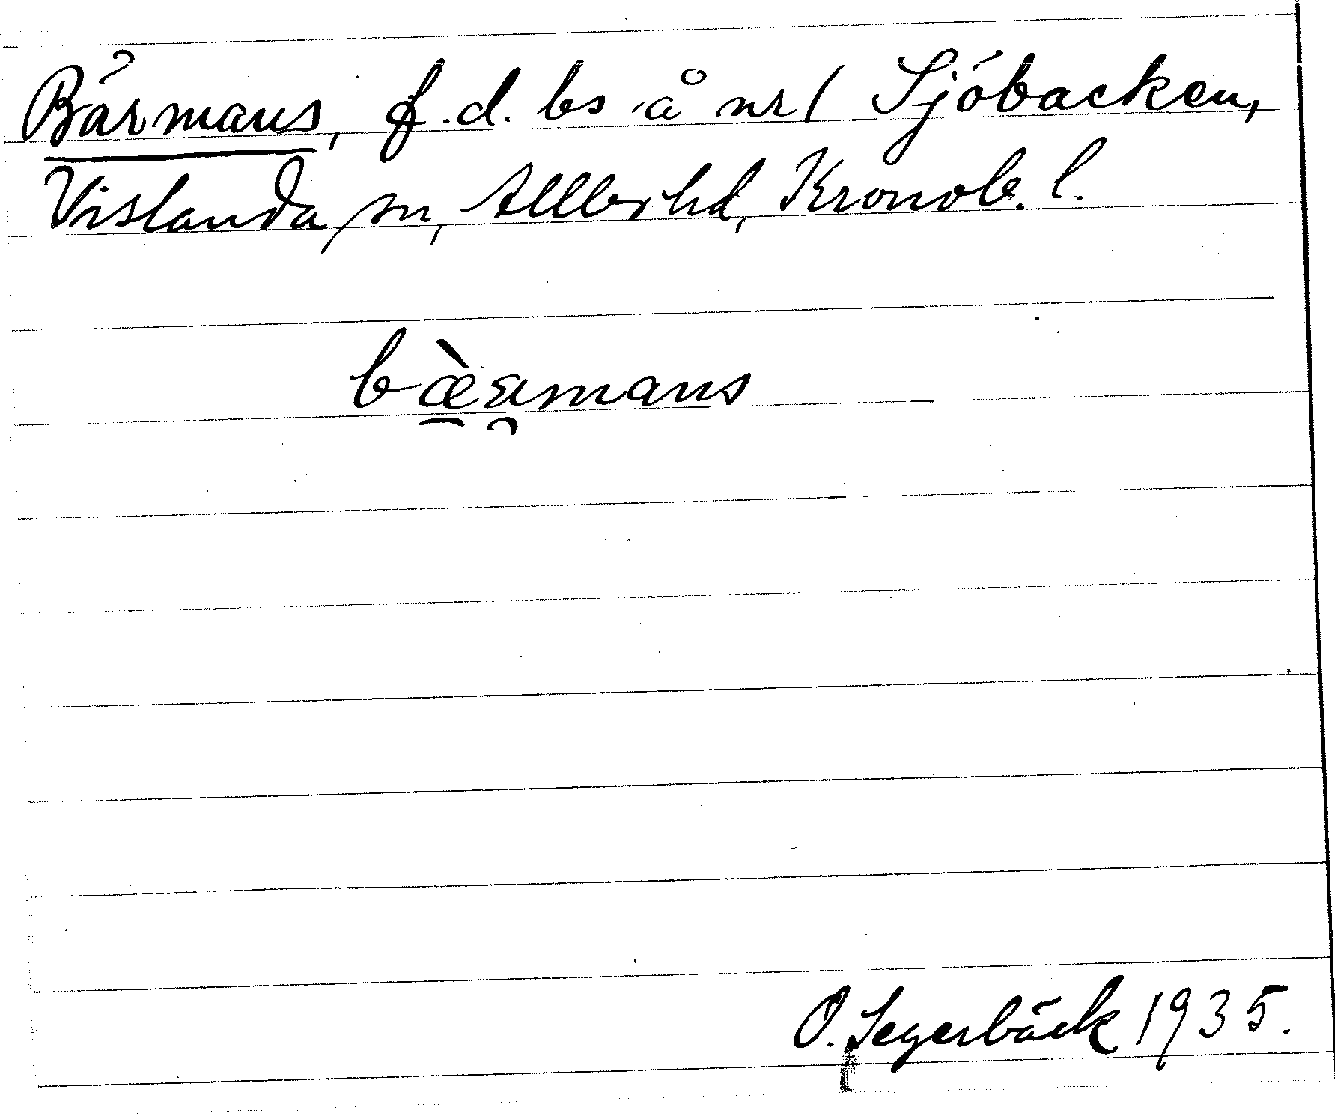 Bärmans, f.d. bs å nr 1 Sjöbacken,
Vislanda sn, Allbo hd, Kronob. l.
O. Segerbäck 1935.